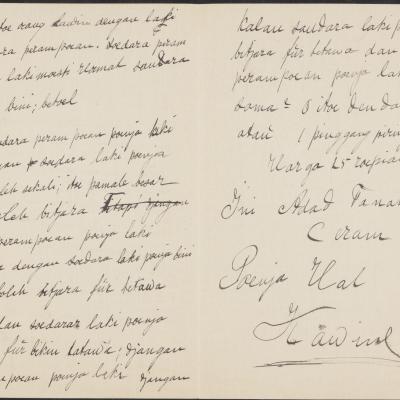 itoe orang kawin dengan laki
ra perampoean. Soedara peram
laki moesti hormat soedara
bini; betoel
dara perampoean poenja laki
gan soedara laki poenja
oleh sekali; itoe pamale besar
oleh bitjara tetapi djangan
perampoean poenja laki
a dengan soedara laki poenja bini
boleh bitjara für betawa
dan soedara laki poenja
für bikin tatawa; djangan
mpoean poenja laki djangan
kalau soudara laki p
bitjara für betawa dan
perampoean poenja la
sama² itoe denda
atau 1 penggang piri
Harga 25 roepia
Ini Adad Tana
Ceram
Poenja Hal
Kawin